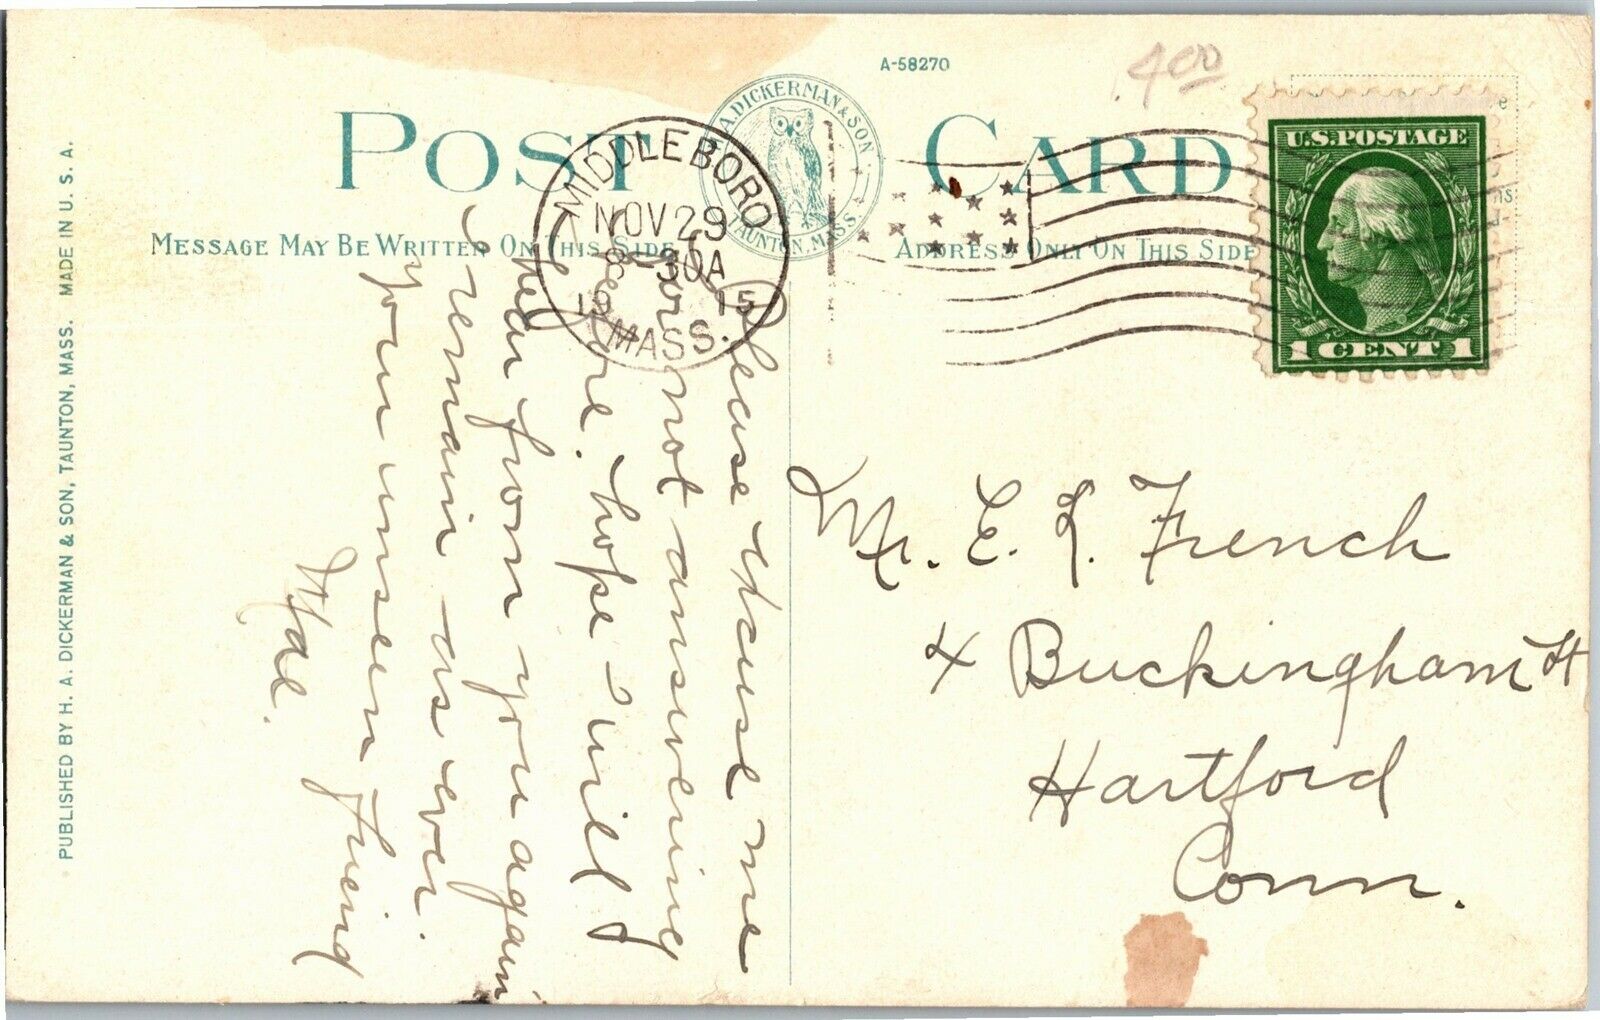 A-58270
4 00
POST CARD
H.A. DICKERMAN & SON
TAUNTON, MASS.
MESSAGE MAY BE WRITTEN ON THIS SIDE
ADDRESS ONLY ON THIS SIDE
MIDDLEBORO
NOV 29
8-30A
1915
MASS.
U.S. POSTAGE
1 CENT 1
Please excuse me
for not answering
before. hope I will
hear from you again
I remain as ever
your unseen friend
Mae.
Mr. E. L. French
4 Buckingham St
Hartford
Conn.
PUBLISHED BY H. A. DICKERMAN & SON, TAUNTON, MASS. MADE IN U. S. A.